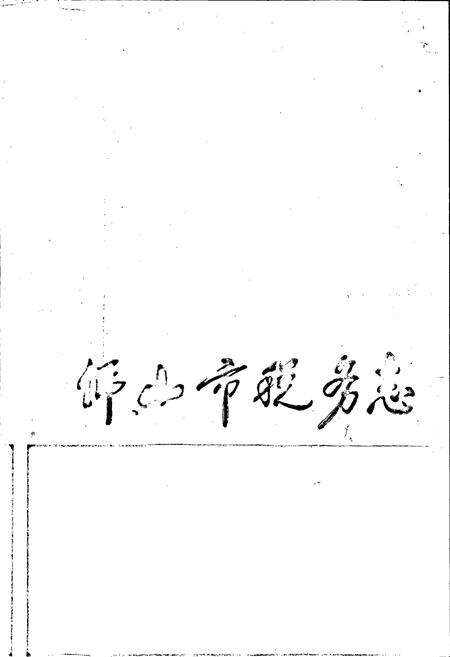 佛山市税务志